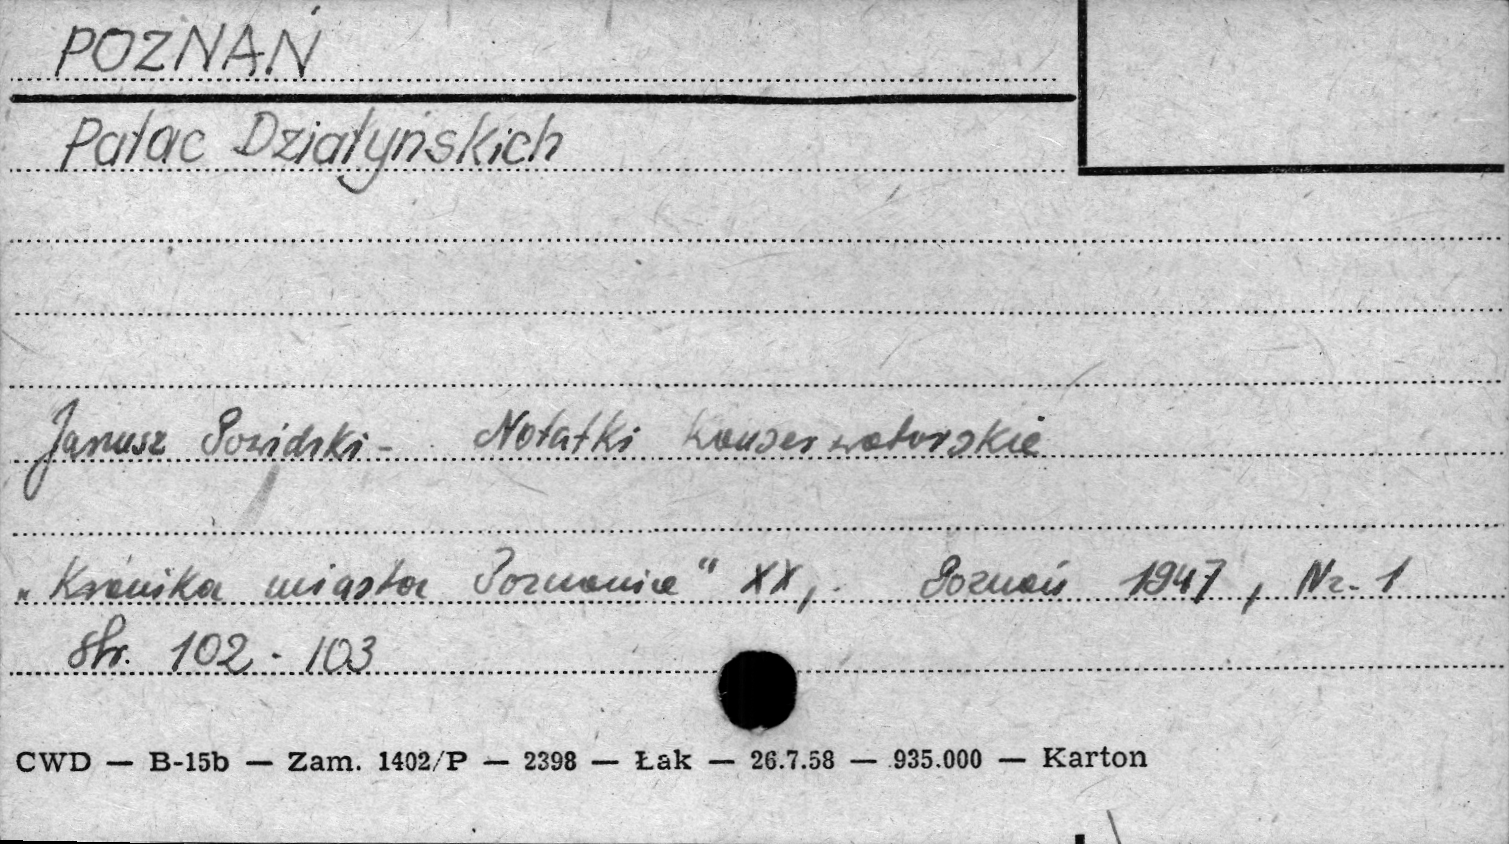 POZNAŃ
Pałac Działyńskich
Janusz Powidzki - Notatki konserwatorskie
„Kronika miasta Poznania" XX, Poznań 1947, Nr. 1
str. 102 - 103
CWD — B-15b — Zam. 1402/P — 2398 — Łak — 26.7.58 — 935.000 — Karton